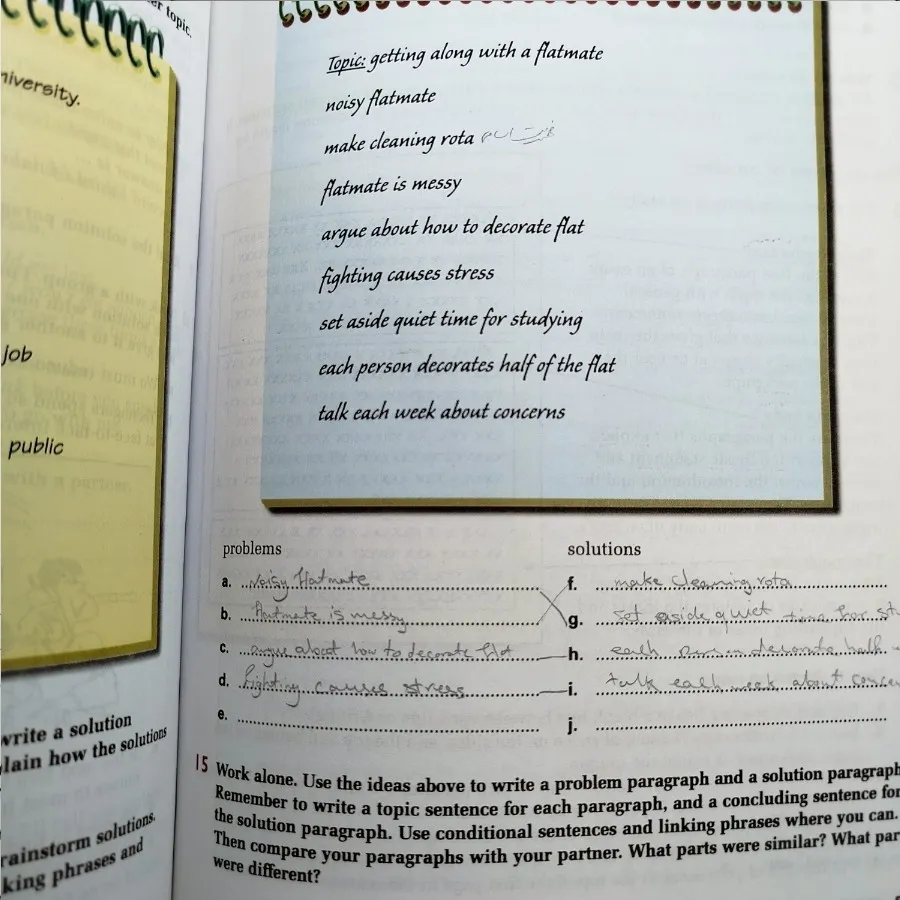 er topic.
niversity.
job
public
write a solution
lain how the solutions
rainstorm solutions.
king phrases and
Topic: getting along with a flatmate
noisy flatmate
make cleaning rota
flatmate is messy
argue about how to decorate flat
fighting causes stress
set aside quiet time for studying
each person decorates half of the flat
talk each week about concerns
problems
a. Noisy flatmate
b. flatmate is messy
c. argue about how to decorate flat
d. fighting causes stress
e.
solutions
f. make cleaning rota
g. set aside quiet time for st
h. each person decorate half
i. talk each week about conce
j.
15 Work alone. Use the ideas above to write a problem paragraph and a solution paragraph
Remember to write a topic sentence for each paragraph, and a concluding sentence for
the solution paragraph. Use conditional sentences and linking phrases where you can.
Then compare your paragraphs with your partner. What parts were similar? What par
were different?